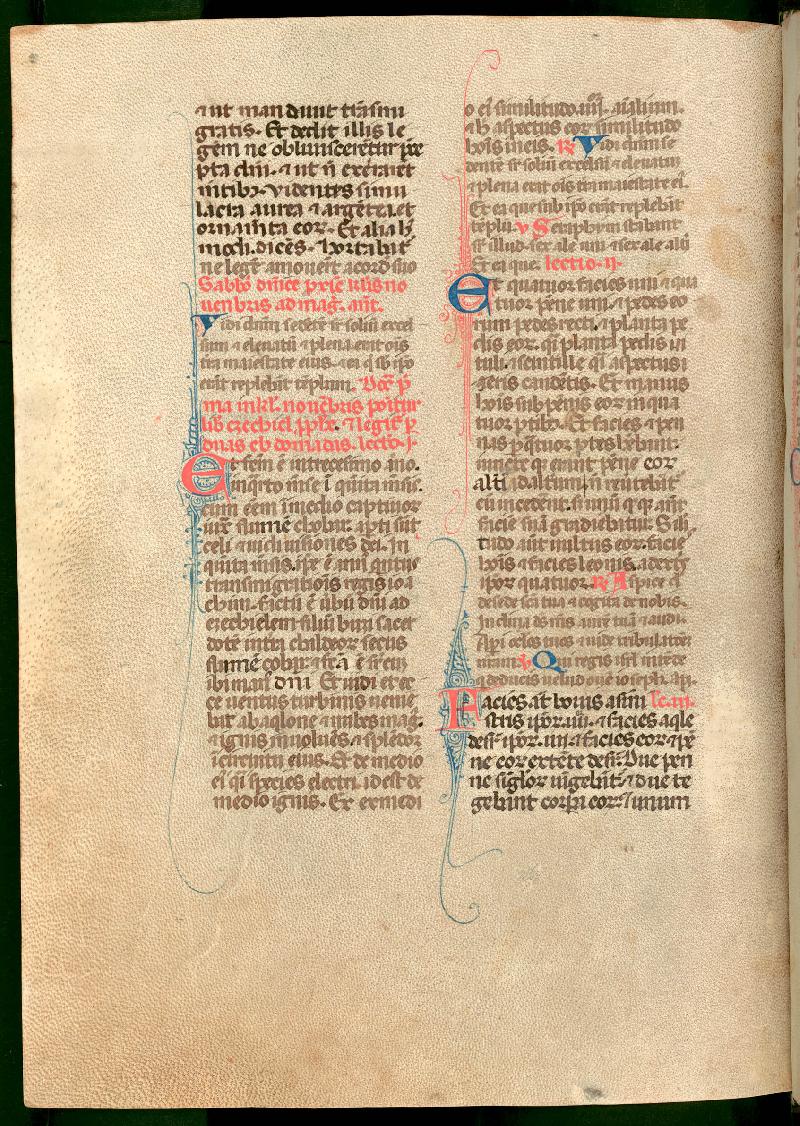 aut manduut trāsmi
gratis. Et dedit illis le
gem ne obliuisceretur p̄ce
pta dn̄i. ⁊ ut n̄ exciret
mētibꝫ. videntes simu
lacra aurea ⁊ argētea. et
ornamēta eoꝝ. Et alia h
modi dicēs. hortabat̄
ne legē amouerēt a corde suo
Sabbō dnīce prīe kl's no
uembris ad maḡ. ant̄.
Vidi dnm sedere sr̄ soliū excel
sum ⁊ eleuatū ⁊ plena erat oīs
tra maiestate eius. ⁊ ea q̄ sb ipo
erāt replebāt templum.
ma in kl'. nouēbris ponitur
lib' ezechiel ꝓphe. ⁊ legit̄ ꝑ
duas ebdomadas. lectō. j.
Et fcm̄ ē in tricesimo āno.
in qrto mēse ī quīta mēsis.
cum eem̄ ī medio captiuoꝝ
iuxͣ flumē chobar. apti sūt
celi ⁊ uidi uisiones dei. In
quīta mēsis. ip̄e ē ann̄ quītus
transmigratiōis regis ioa
chim. Fāctū ē ūbū dn̄i ad
ezechielem filiū buzi sacer
dotē in trā chaldeoꝝ secus
flumē cobar. ⁊ fcā ē sr̄ eū
ibi man' dn̄i Et uidi et ec
ce uentus turbinis ueniē
bat ab aqlone ⁊ nubes maḡ.
⁊ ignis inuoluēs ⁊ splēdor
ī circuitu eius. Et de medio
ei' q̄i species electri. id est de
medio ignis. Et ex medi
o ei' similitudo .iiij. aīalium.
⁊ h̄ aspectus eoꝝ similitudo
hoīs in eis. ℟ Vidi dnm se
dentē sr̄ soliū excelsū ⁊ eleuatū
⁊ plena erat oīs tra maiestate ei'.
Et ea que sub ipō erāt replebāt
tēplū. ℣ Seraphym stabant
sr̄ illud. sex ale uni ⁊ sex ale altī
Et ea que. lectio .ij.
Et quatuor facies uni ⁊ qua
tuor pēne uni. ⁊ pedes eo
rum pedes recti. ⁊ planta pe
dis eoꝝ. q̄i planta pedis ui
tuli. ⁊ scintille q̄i aspectus
eris candētis. Et manus
hoīs sub pēnis eoꝝ in qua
tuor ꝑtibꝫ. Et facies ⁊ pen
nas ꝑ q̄tuor ꝑtes hēbant.
iuncte q̄ erant pēne eoꝝ
altī ad altum. n̄ reūtebāt̄
cū incederent. sꝫ unū q̄q̄ añt
faciē suā gradiebatur. Simi
tudo aūt uultus eoꝝ. facie'
hoīs ⁊ facies leonis. a dextꝭ
ipoꝝ quatuor. ℟ Aspice d'
de sede scā tua ⁊ cogita de nobis.
Inclina ds' m̄s aurē tuā ⁊ audi.
Api oclos tuos ⁊ uide tribulatōem
℣ Qui regis isr̄l intēde
q̄ deducis uelud ouē ioseph. Api.
Facies at bouis asini lc̄. iij.
stris ipoꝝ .iiij. ⁊ facies aq̄le
desr̄ ipoꝝ .iiij. ⁊ facies eoꝝ ⁊ pē
ne eoꝝ extēte desr̄. Due pen
ne sīgloꝝ uīgebāt̄. ⁊ due te
gebant corpa eoꝝ. ⁊ unum